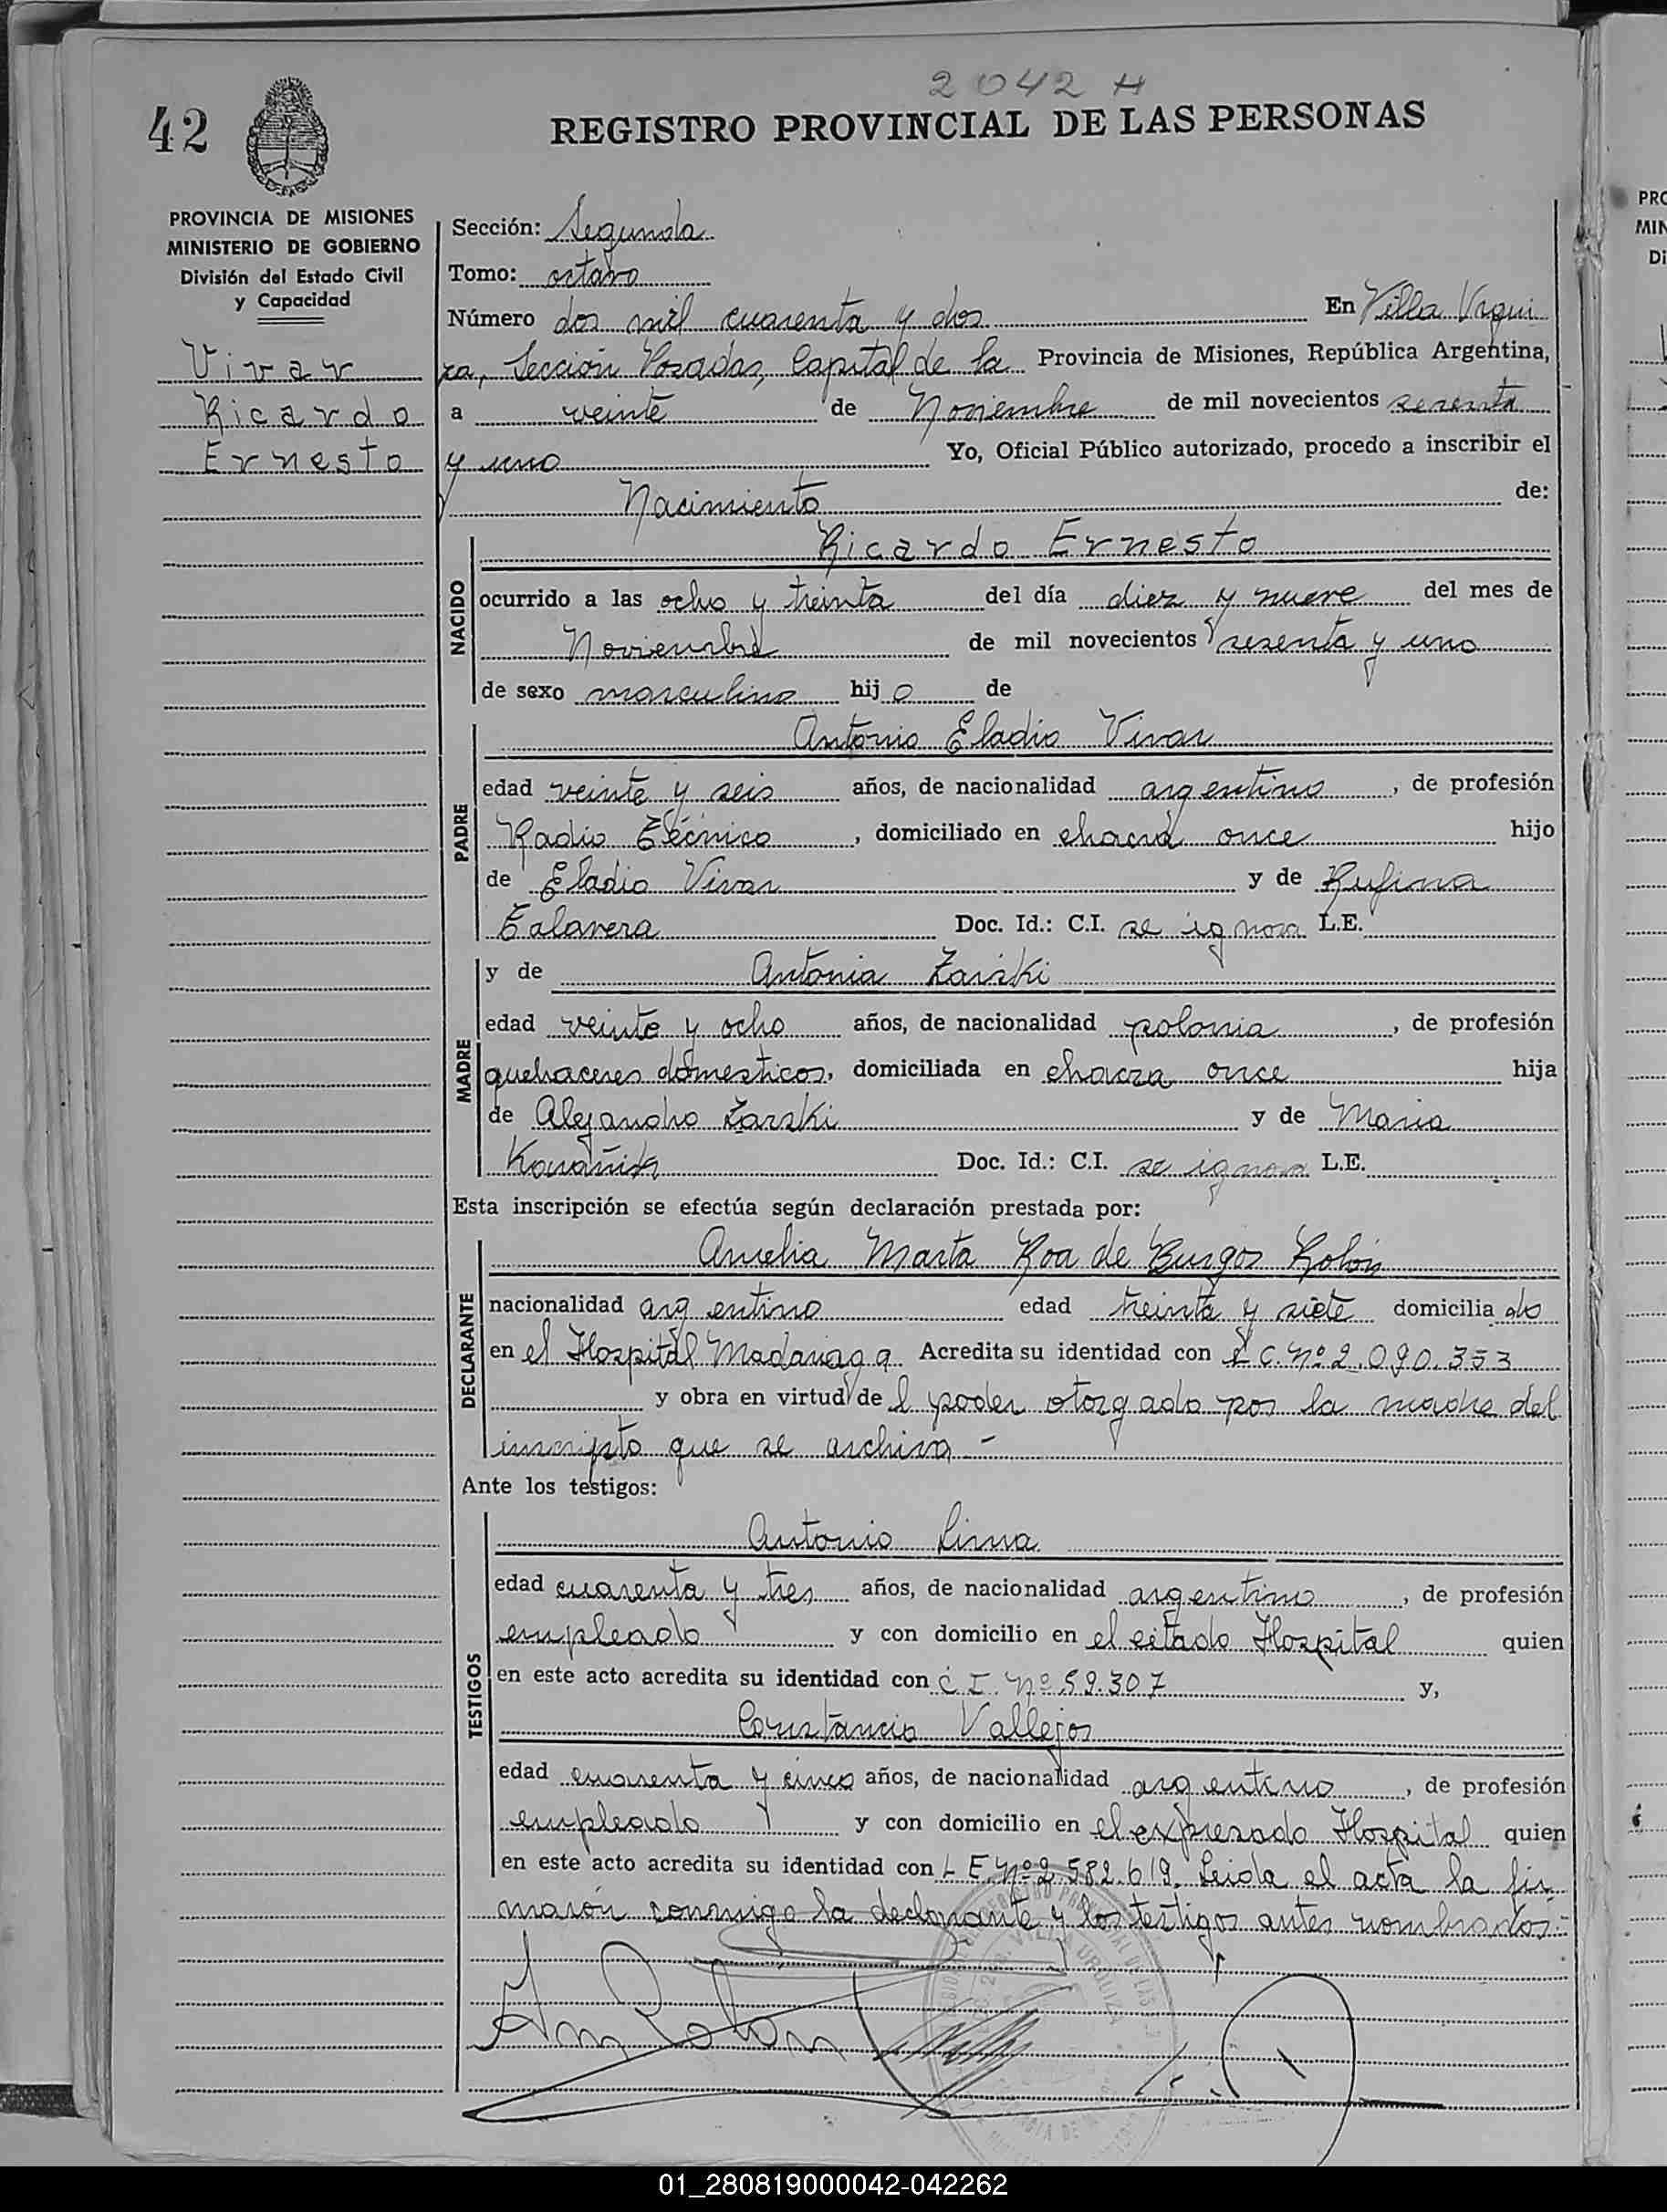 2042 H
42
REGISTRO PROVINCIAL DE LAS PERSONAS
PROVINCIA DE MISIONES
MINISTERIO DE GOBIERNO
División del Estado Civil
y Capacidad
Vivar
Ricardo
Ernesto
Sección: Segunda
Tomo: octavo
Número dos mil cuarenta y dos En Villa Urqui
za, Sección Posadas, Capital de la Provincia de Misiones, República Argentina,
a veinte de Noviembre de mil novecientos sesenta
y uno Yo, Oficial Público autorizado, procedo a inscribir el
Nacimiento de:
NACIDO
Ricardo Ernesto
ocurrido a las ocho y treinta del día diez y nueve del mes de
Noviembre de mil novecientos sesenta y uno
de sexo masculino hijo de
PADRE
Antonio Eladio Vivar
edad veinte y seis años, de nacionalidad argentino, de profesión
Radio Técnico, domiciliado en chacra once hijo
de Eladio Vivar y de Rufina
Talavera Doc. Id.: C.I. se ignora L.E.
MADRE
y de Antonia Zarski
edad veinte y ocho años, de nacionalidad polonia, de profesión
quehaceres domesticos, domiciliada en chacra once hija
de Alejandro Zarski y de Maria
Doc. Id.: C.I. se ignora L.E.
Esta inscripción se efectúa según declaración prestada por:
DECLARANTE
Amelia Marta Roa de Burgos Rolón
nacionalidad argentino edad treinta y siete domiciliado
en el Hospital Madariaga Acredita su identidad con L C. Nº 2.090.353
y obra en virtud del poder otorgado por la madre del
inscripto que se archiva -
Ante los testigos:
TESTIGOS
Antonio Lima
edad cuarenta y tres años, de nacionalidad argentino, de profesión
empleado y con domicilio en el citado Hospital quien
en este acto acredita su identidad con C I. Nº 59.307 y,
Constancio Vallejos
edad cuarenta y cinco años, de nacionalidad argentino, de profesión
empleado y con domicilio en el expresado Hospital quien
en este acto acredita su identidad con L E. Nº 2.582.619. Leida el acta la fir
maron conmigo la declarante y los testigos antes nombrados.-
PRO
MIN
Di
01_280819000042-042262